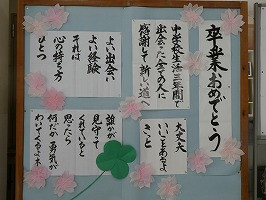 卒業おめでとう
中学校生活三年間で
出会った全ての人に
感謝して新しい道へ
よい出会い
よい経験
それは
心の持ち方
ひとつ
大丈夫
いいことあるよ
きっと
誰かが
見守って
くれていると
思ったら
何だか勇気が
わいてくるよネ